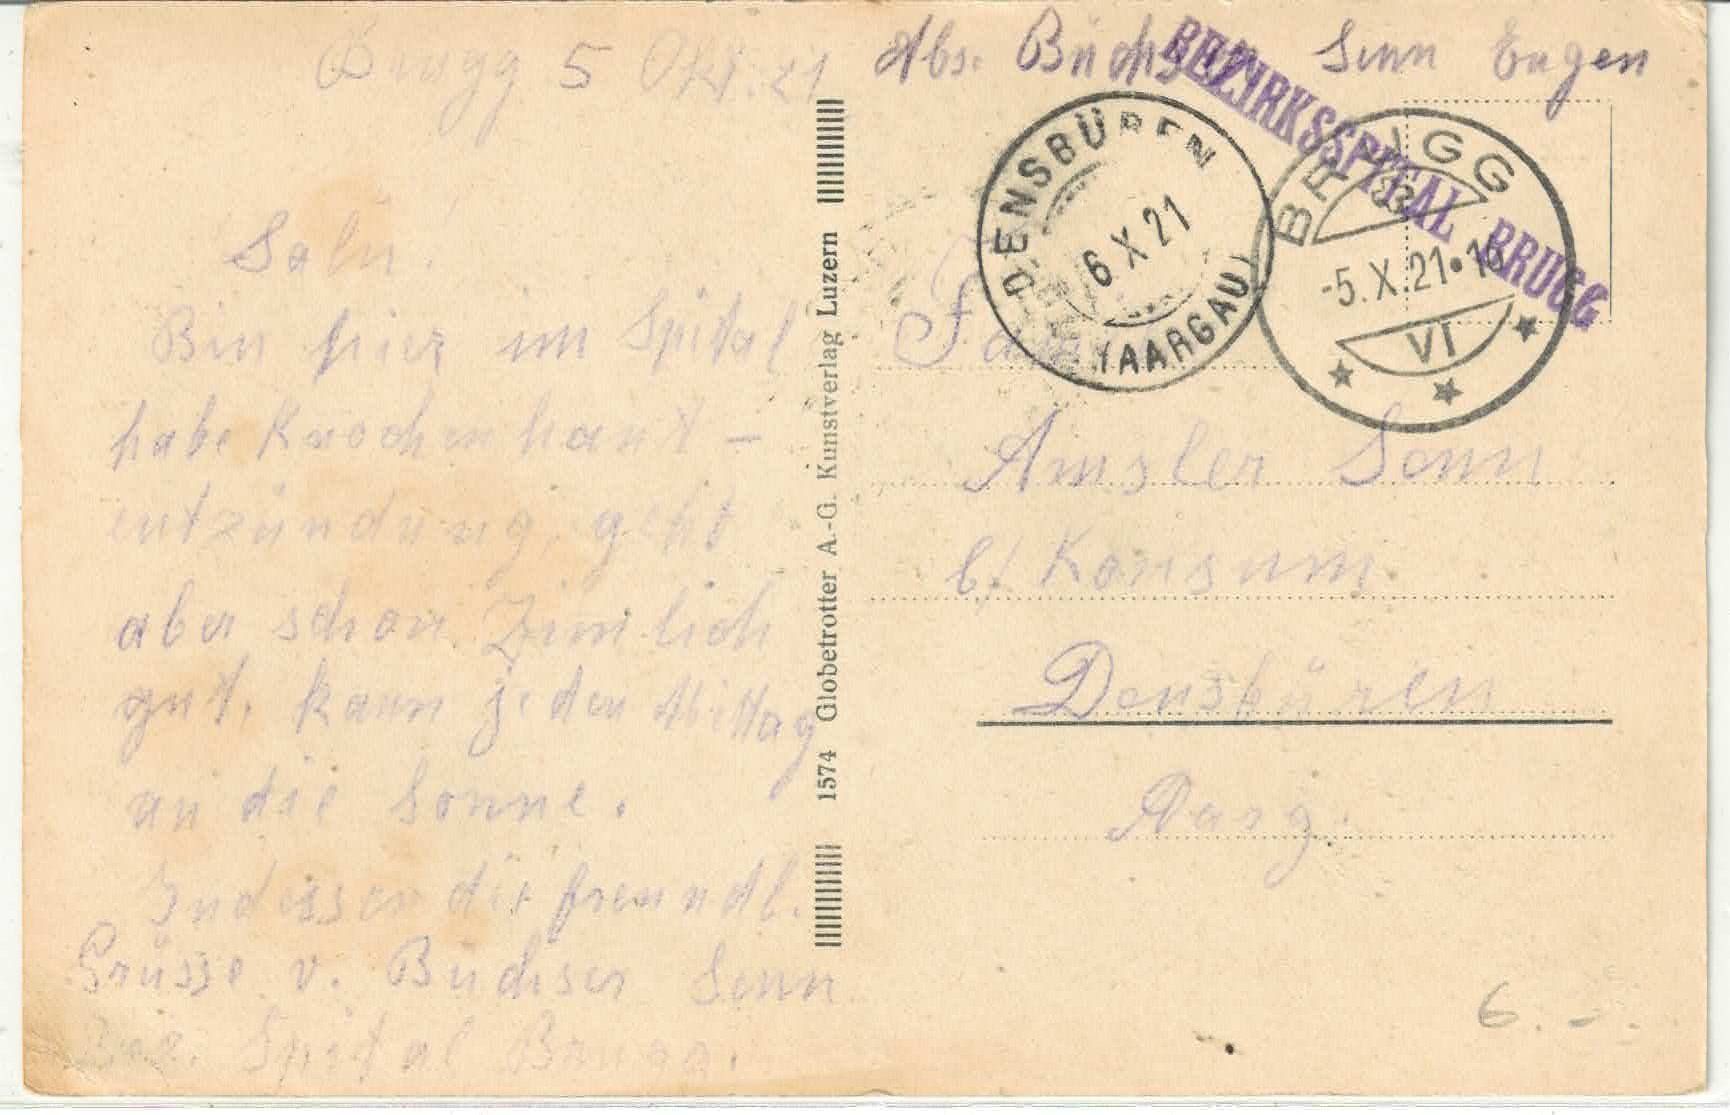 Brugg 5 Okt. 21
Salü!
Bin hier im Spital
habe Knochenhaut-
entzündung, geht
aber schon Zimlich
gut, kann jeden Mittag
an die Sonne.
Indessen die freundl.
Grüsse v. Buchser Senn
Bez. Spital Brugg.
1574 Globetrotter A.-G. Kunstverlag Luzern
Abs. Senn Eugen
BEZIRKSSPITAL BRUGG
DENSBÜREN
6 X 21
(AARGAU)
BRUGG
-5. X. 21•16
VI
Amsler Senn
b/ Konsum
Densbüren
Aarg.
6.-.